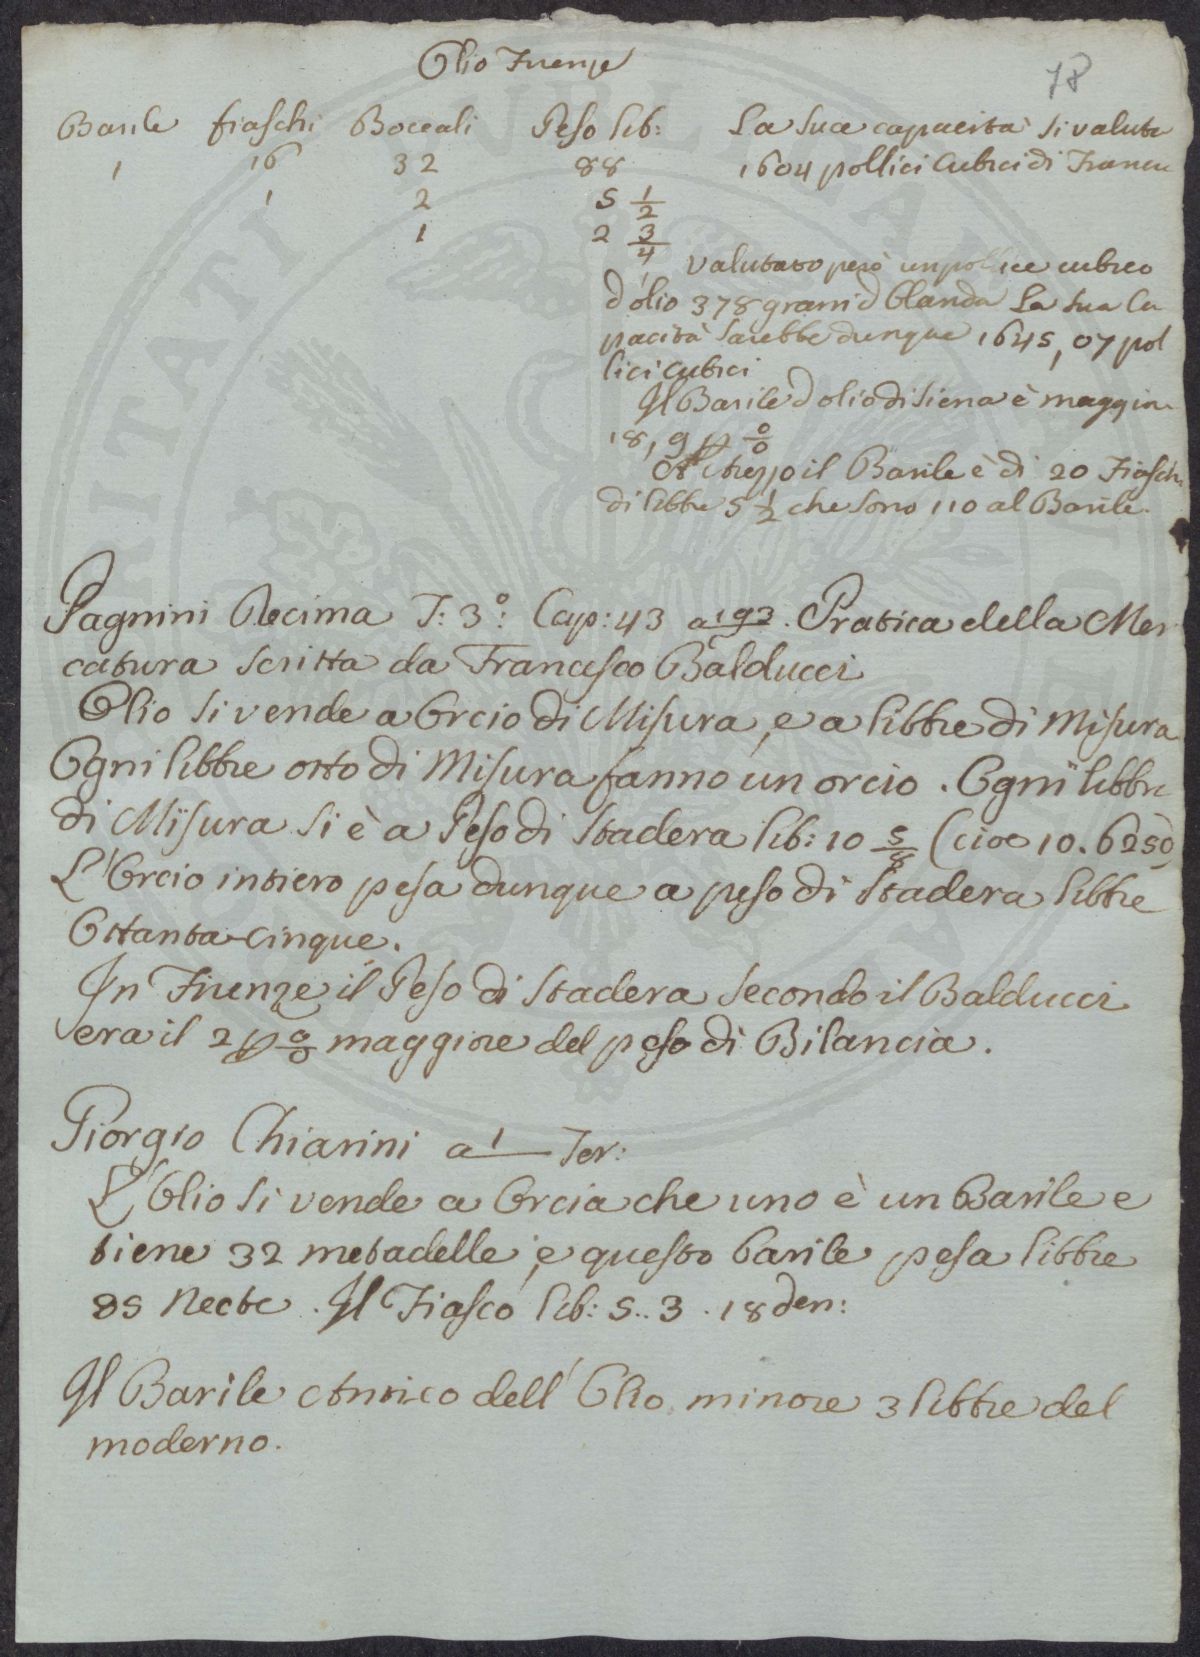 Olio Firenze
78
Barile fiaschi Boccali Peso lib: La sua capacità si valuta
1 16 32 88 1604 pollici Cubici di Francia
1 2 5 1/2
1 2 3/4
Valutato però un pollice cubico
d'olio 378 grani d Olanda La sua Ca
pacità sarebbe dunque 1645,07 pol
lici cubici
Il Barile d olio di Siena è maggior
18,9 p 0/0
Arezzo il Barile è di 20 Fiaschi
di libbre 5 1/2 che sono 110 al Barile.
Pagnini Decima T: 3°: Cap: 43 a 193. Pratica della Mer
catura scritta da Francesco Balducci
Olio si vende a Orcio di Misura, e a libbre di Misura
Ogni libbre otto di Misura fanno un orcio. Ogni libbra
di Misura si è a Peso di Stadera lib: 10 5/8 (cioè 10.6250)
L'Orcio intiero pesa dunque a peso di Stadera libbre
Ottanta-cinque.
In Firenze il Peso di Stadera secondo il Balducci
era il 2 p 0/0 maggiore del peso di Bilancia.
Giorgio Chiarini a 1 Ter:
L'Olio si vende a Orcia che uno è un Barile e
tiene 32 metadelle, e questo barile pesa libbre
85 Necte. Il Fiasco lib: 5.. 3. 18 den:
Il Barile Antico dell' Olio minore 3 libbre del
moderno.